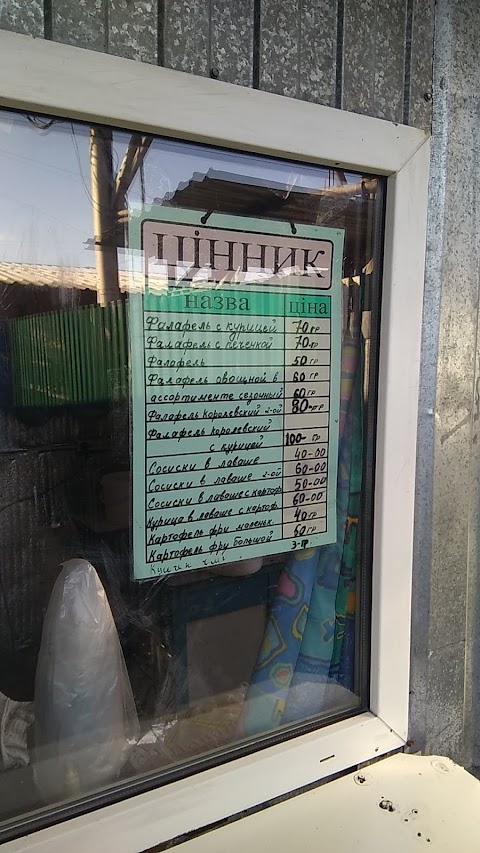 ЦІННИК
назва ціна
Фалафель с курицей 70 гр
Фалафель с печенкой 70 гр
Фалафель 50 гр
Фалафель овощной в 60 гр
ассортименте сезонный 60 гр
Фалафель королевский 2-ой 80 гр
Фалафель королевский
с курицей 100- гр
Сосиски в лаваше 40-00
Сосиски в лаваше 2-ой 60-00
Сосиски в лаваше с картоф. 50-00
Курица в лаваше с картоф. 60-00
Картофель фри маленьк. 40 гр
Картофель фри большой 50 гр
3-гр.